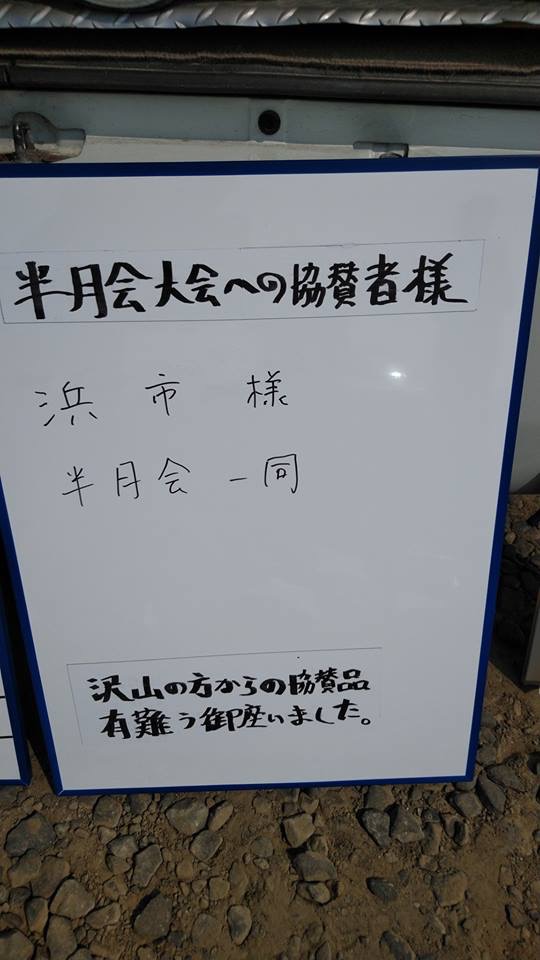 半月会大会への協賛者様
浜市様
半月会一同
沢山の方からの協賛品
有難う御座いました。